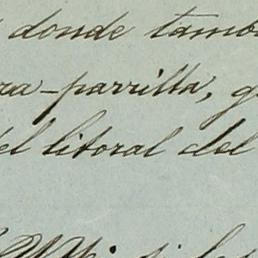 donde tamb
za-parrilla, g
del litoral del